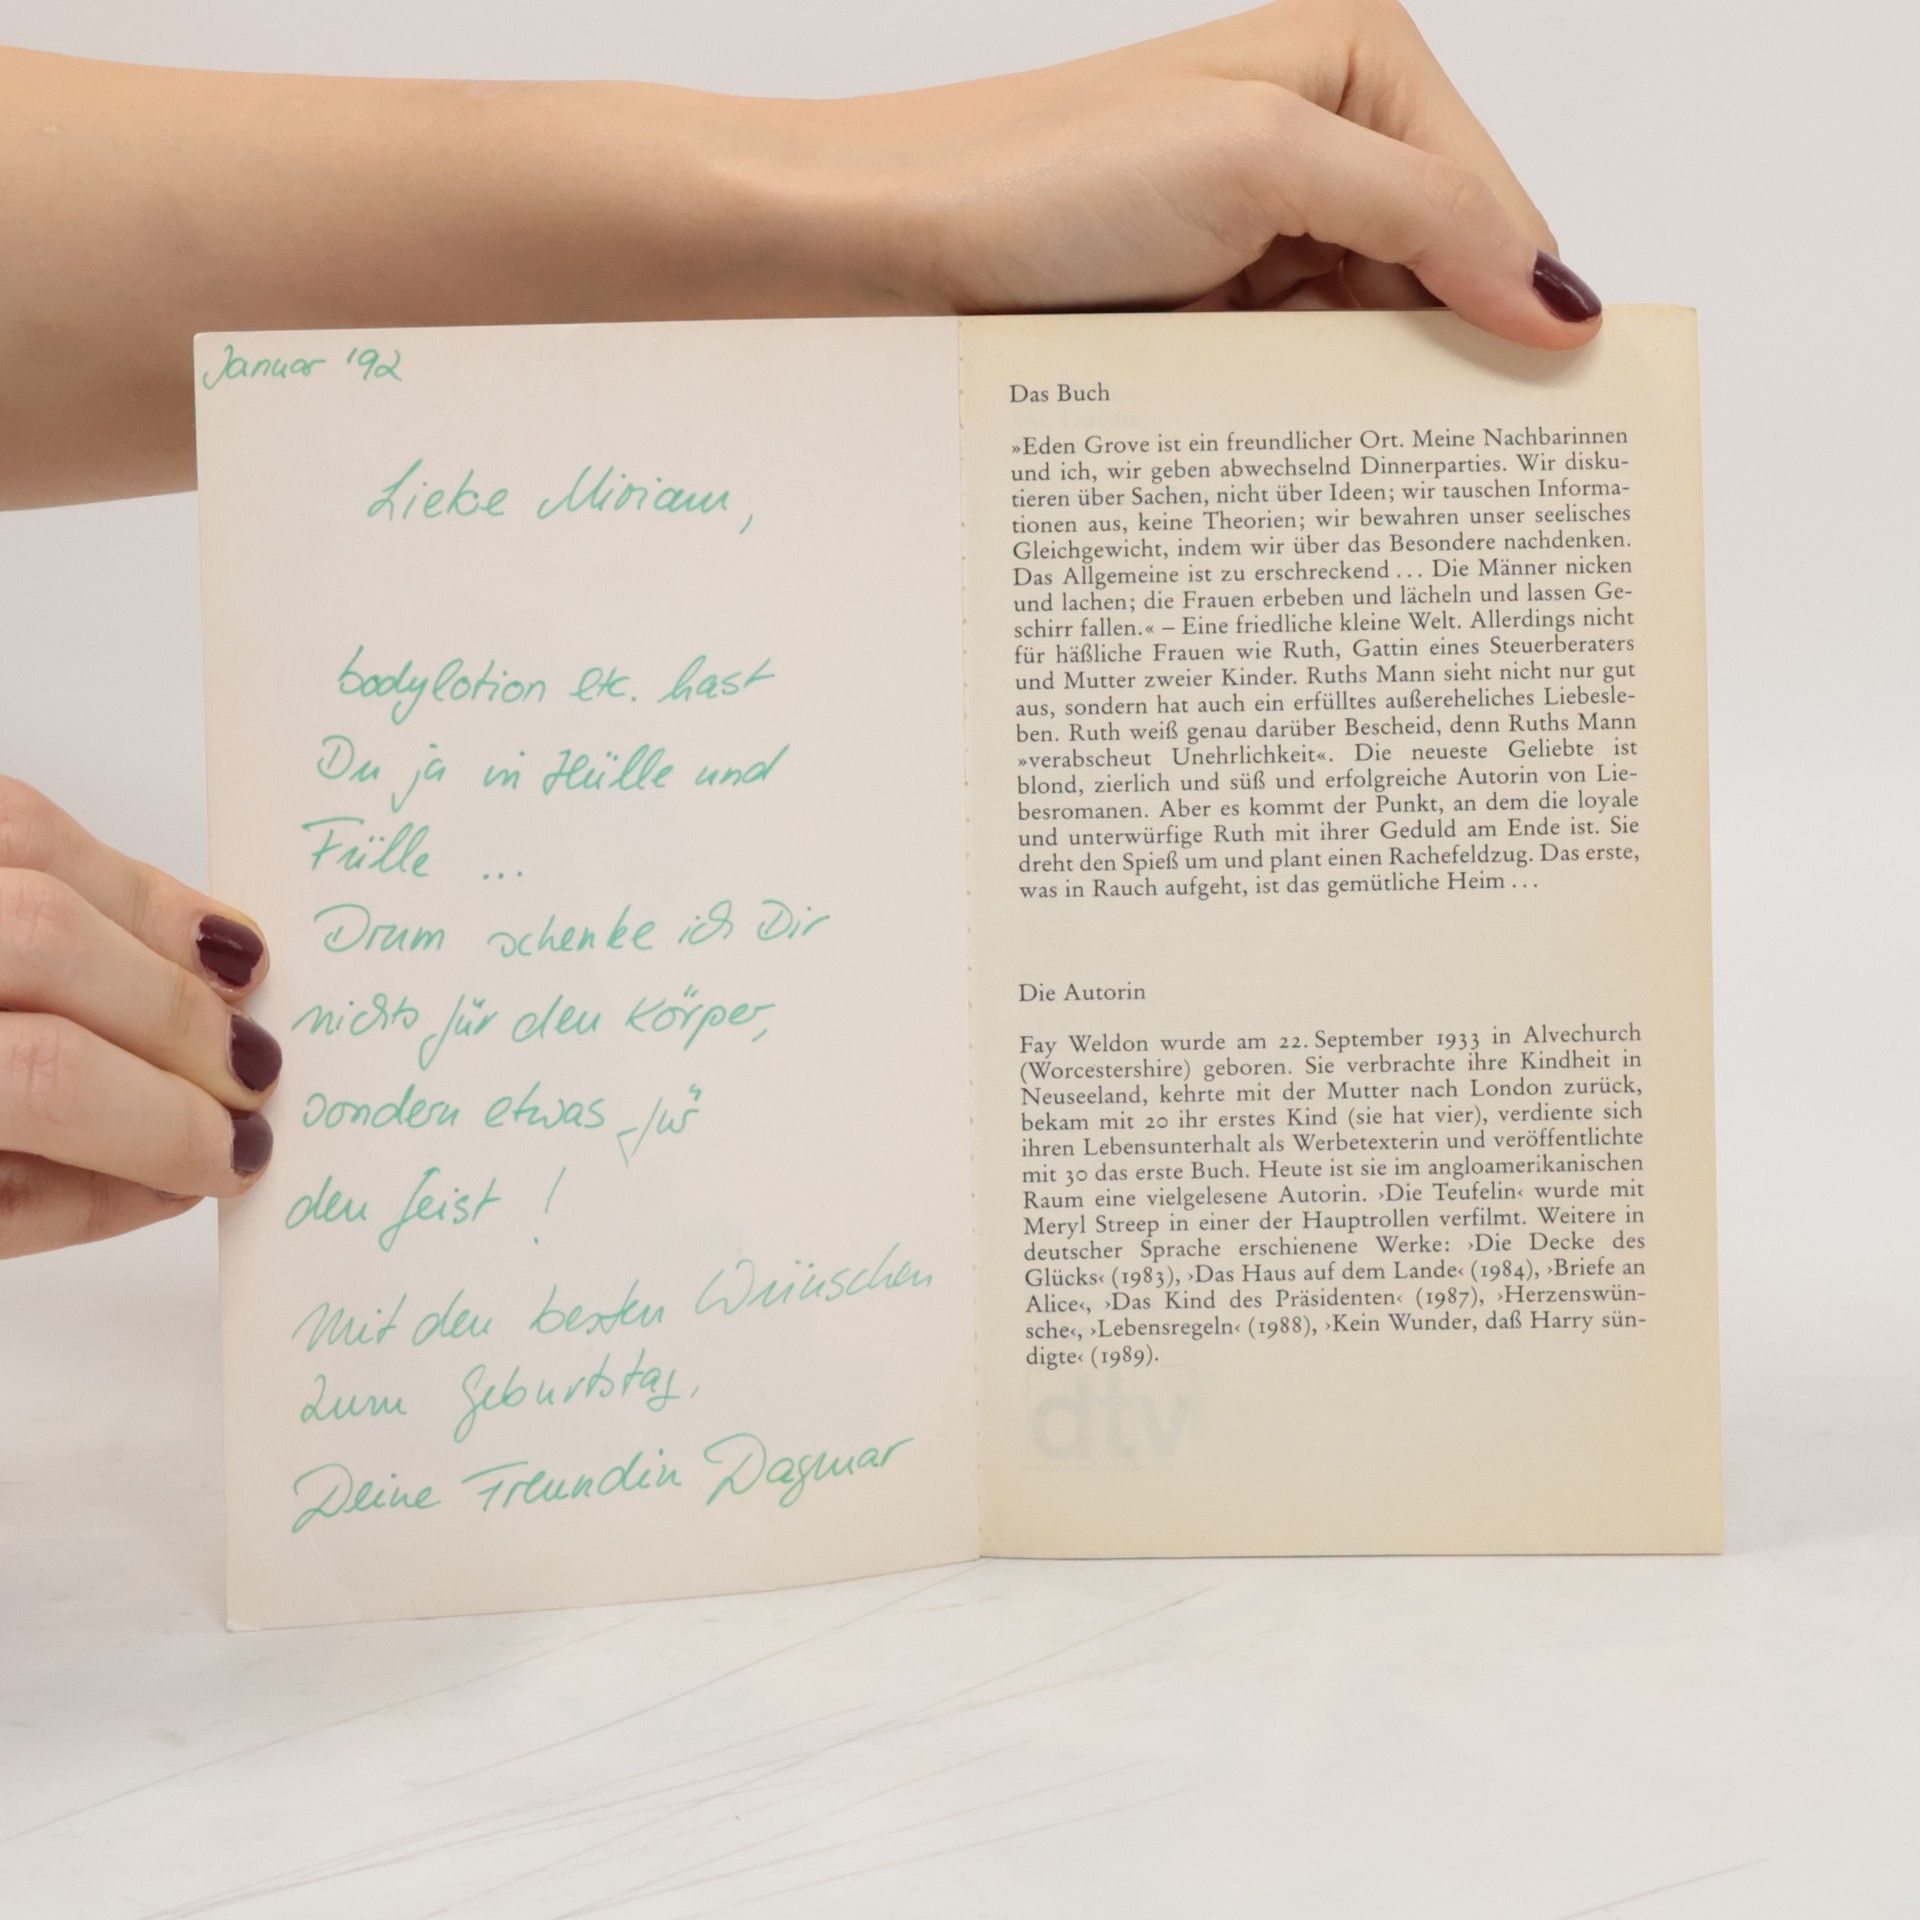 Januar '92
Liebe Miriam,
bodylotion etc. hast
Du ja in Hülle und
Fülle ...
Drum schenke ich Dir
nichts für den Körper,
sondern etwas für
den Geist !
Mit den besten Wünschen
zum Geburtstag,
Deine Freundin Dagmar
Das Buch
»Eden Grove ist ein freundlicher Ort. Meine Nachbarinnen
und ich, wir geben abwechselnd Dinnerparties. Wir disku-
tieren über Sachen, nicht über Ideen; wir tauschen Informa-
tionen aus, keine Theorien; wir bewahren unser seelisches
Gleichgewicht, indem wir über das Besondere nachdenken.
Das Allgemeine ist zu erschreckend ... Die Männer nicken
und lachen; die Frauen erbeben und lächeln und lassen Ge-
schirr fallen.« – Eine friedliche kleine Welt. Allerdings nicht
für häßliche Frauen wie Ruth, Gattin eines Steuerberaters
und Mutter zweier Kinder. Ruths Mann sieht nicht nur gut
aus, sondern hat auch ein erfülltes außereheliches Liebesle-
ben. Ruth weiß genau darüber Bescheid, denn Ruths Mann
»verabscheut Unehrlichkeit«. Die neueste Geliebte ist
blond, zierlich und süß und erfolgreiche Autorin von Lie-
besromanen. Aber es kommt der Punkt, an dem die loyale
und unterwürfige Ruth mit ihrer Geduld am Ende ist. Sie
dreht den Spieß um und plant einen Rachefeldzug. Das erste,
was in Rauch aufgeht, ist das gemütliche Heim ...
Die Autorin
Fay Weldon wurde am 22. September 1933 in Alvechurch
(Worcestershire) geboren. Sie verbrachte ihre Kindheit in
Neuseeland, kehrte mit der Mutter nach London zurück,
bekam mit 20 ihr erstes Kind (sie hat vier), verdiente sich
ihren Lebensunterhalt als Werbetexterin und veröffentlichte
mit 30 das erste Buch. Heute ist sie im angloamerikanischen
Raum eine vielgelesene Autorin. ›Die Teufelin‹ wurde mit
Meryl Streep in einer der Hauptrollen verfilmt. Weitere in
deutscher Sprache erschienene Werke: ›Die Decke des
Glücks‹ (1983), ›Das Haus auf dem Lande‹ (1984), ›Briefe an
Alice‹, ›Das Kind des Präsidenten‹ (1987), ›Herzenswün-
sche‹, ›Lebensregeln‹ (1988), ›Kein Wunder, daß Harry sün-
digte‹ (1989).
dtv